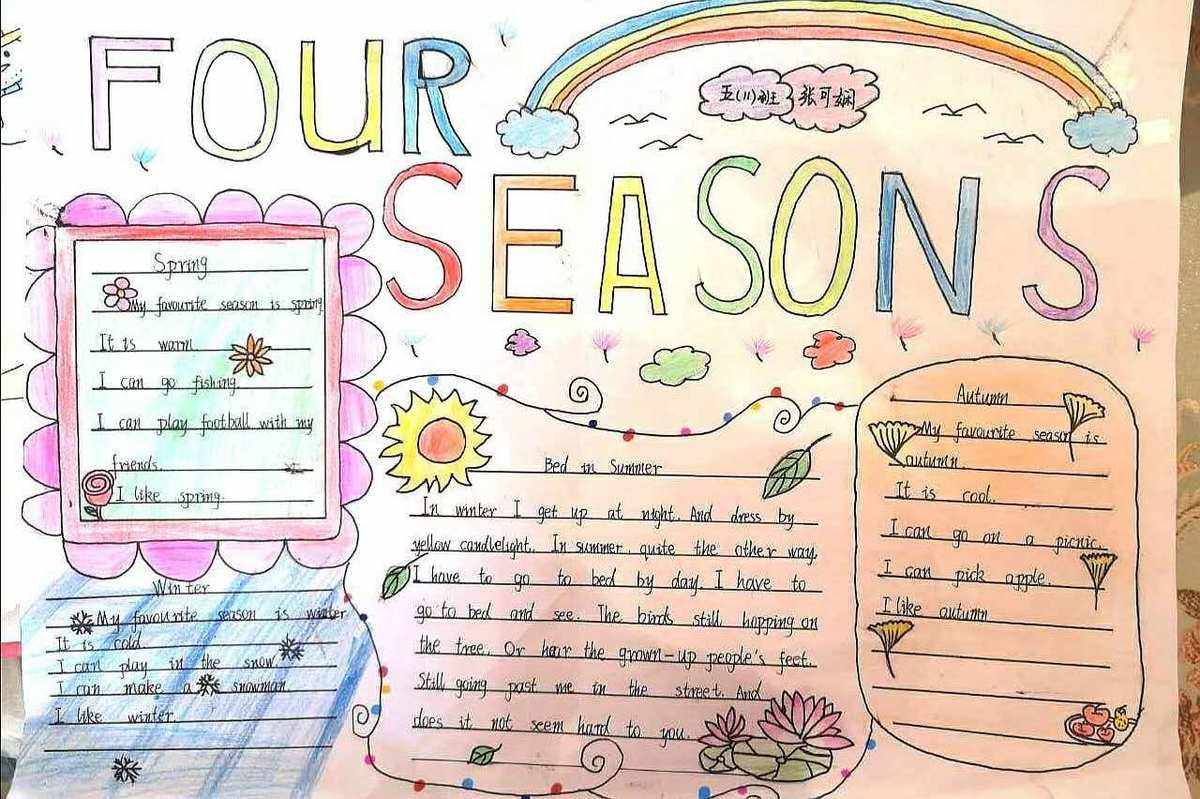 FOUR
五(11)班 张可娴
SEASONS
Spring
My favourite season is spring
It is warm
I can go fishing.
I can play football with my
friends.
I like spring.
Winter
My favourite season is winter
It is cold.
I can play in the snow.
I can make a snowman.
I like winter.
Bed in Summer
In winter I get up at night. And dress by
yellow candlelight. In summer, quite the other way
I have to go to bed by day. I have to
go to bed and see. The birds still hopping on
the tree. Or hear the grown-up people's feet.
Still going past me in the street. And
does it not seem hard to you.
Autumn
My favourite season is
autumn.
It is cool.
I can go on a picnic.
I can pick apple.
I like autumn